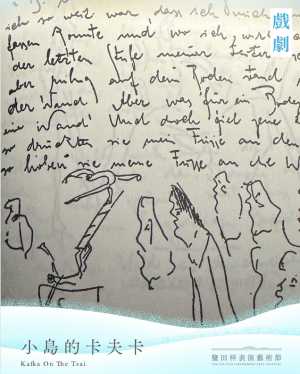 戲劇
ich so weit war, dass ich
fassen konnte und wo ich,
der letzten Stufe meiner Leiter
aber ruhig auf dem Boden stand
der Wand. Aber was für ein Boden
eine Wand! Und doch fiel jene
so drückten sie meine Füsse an den
so hoben sie meine Füsse an die
小島的卡夫卡
Kafka On The Tsai
鹽田梓表演藝術節